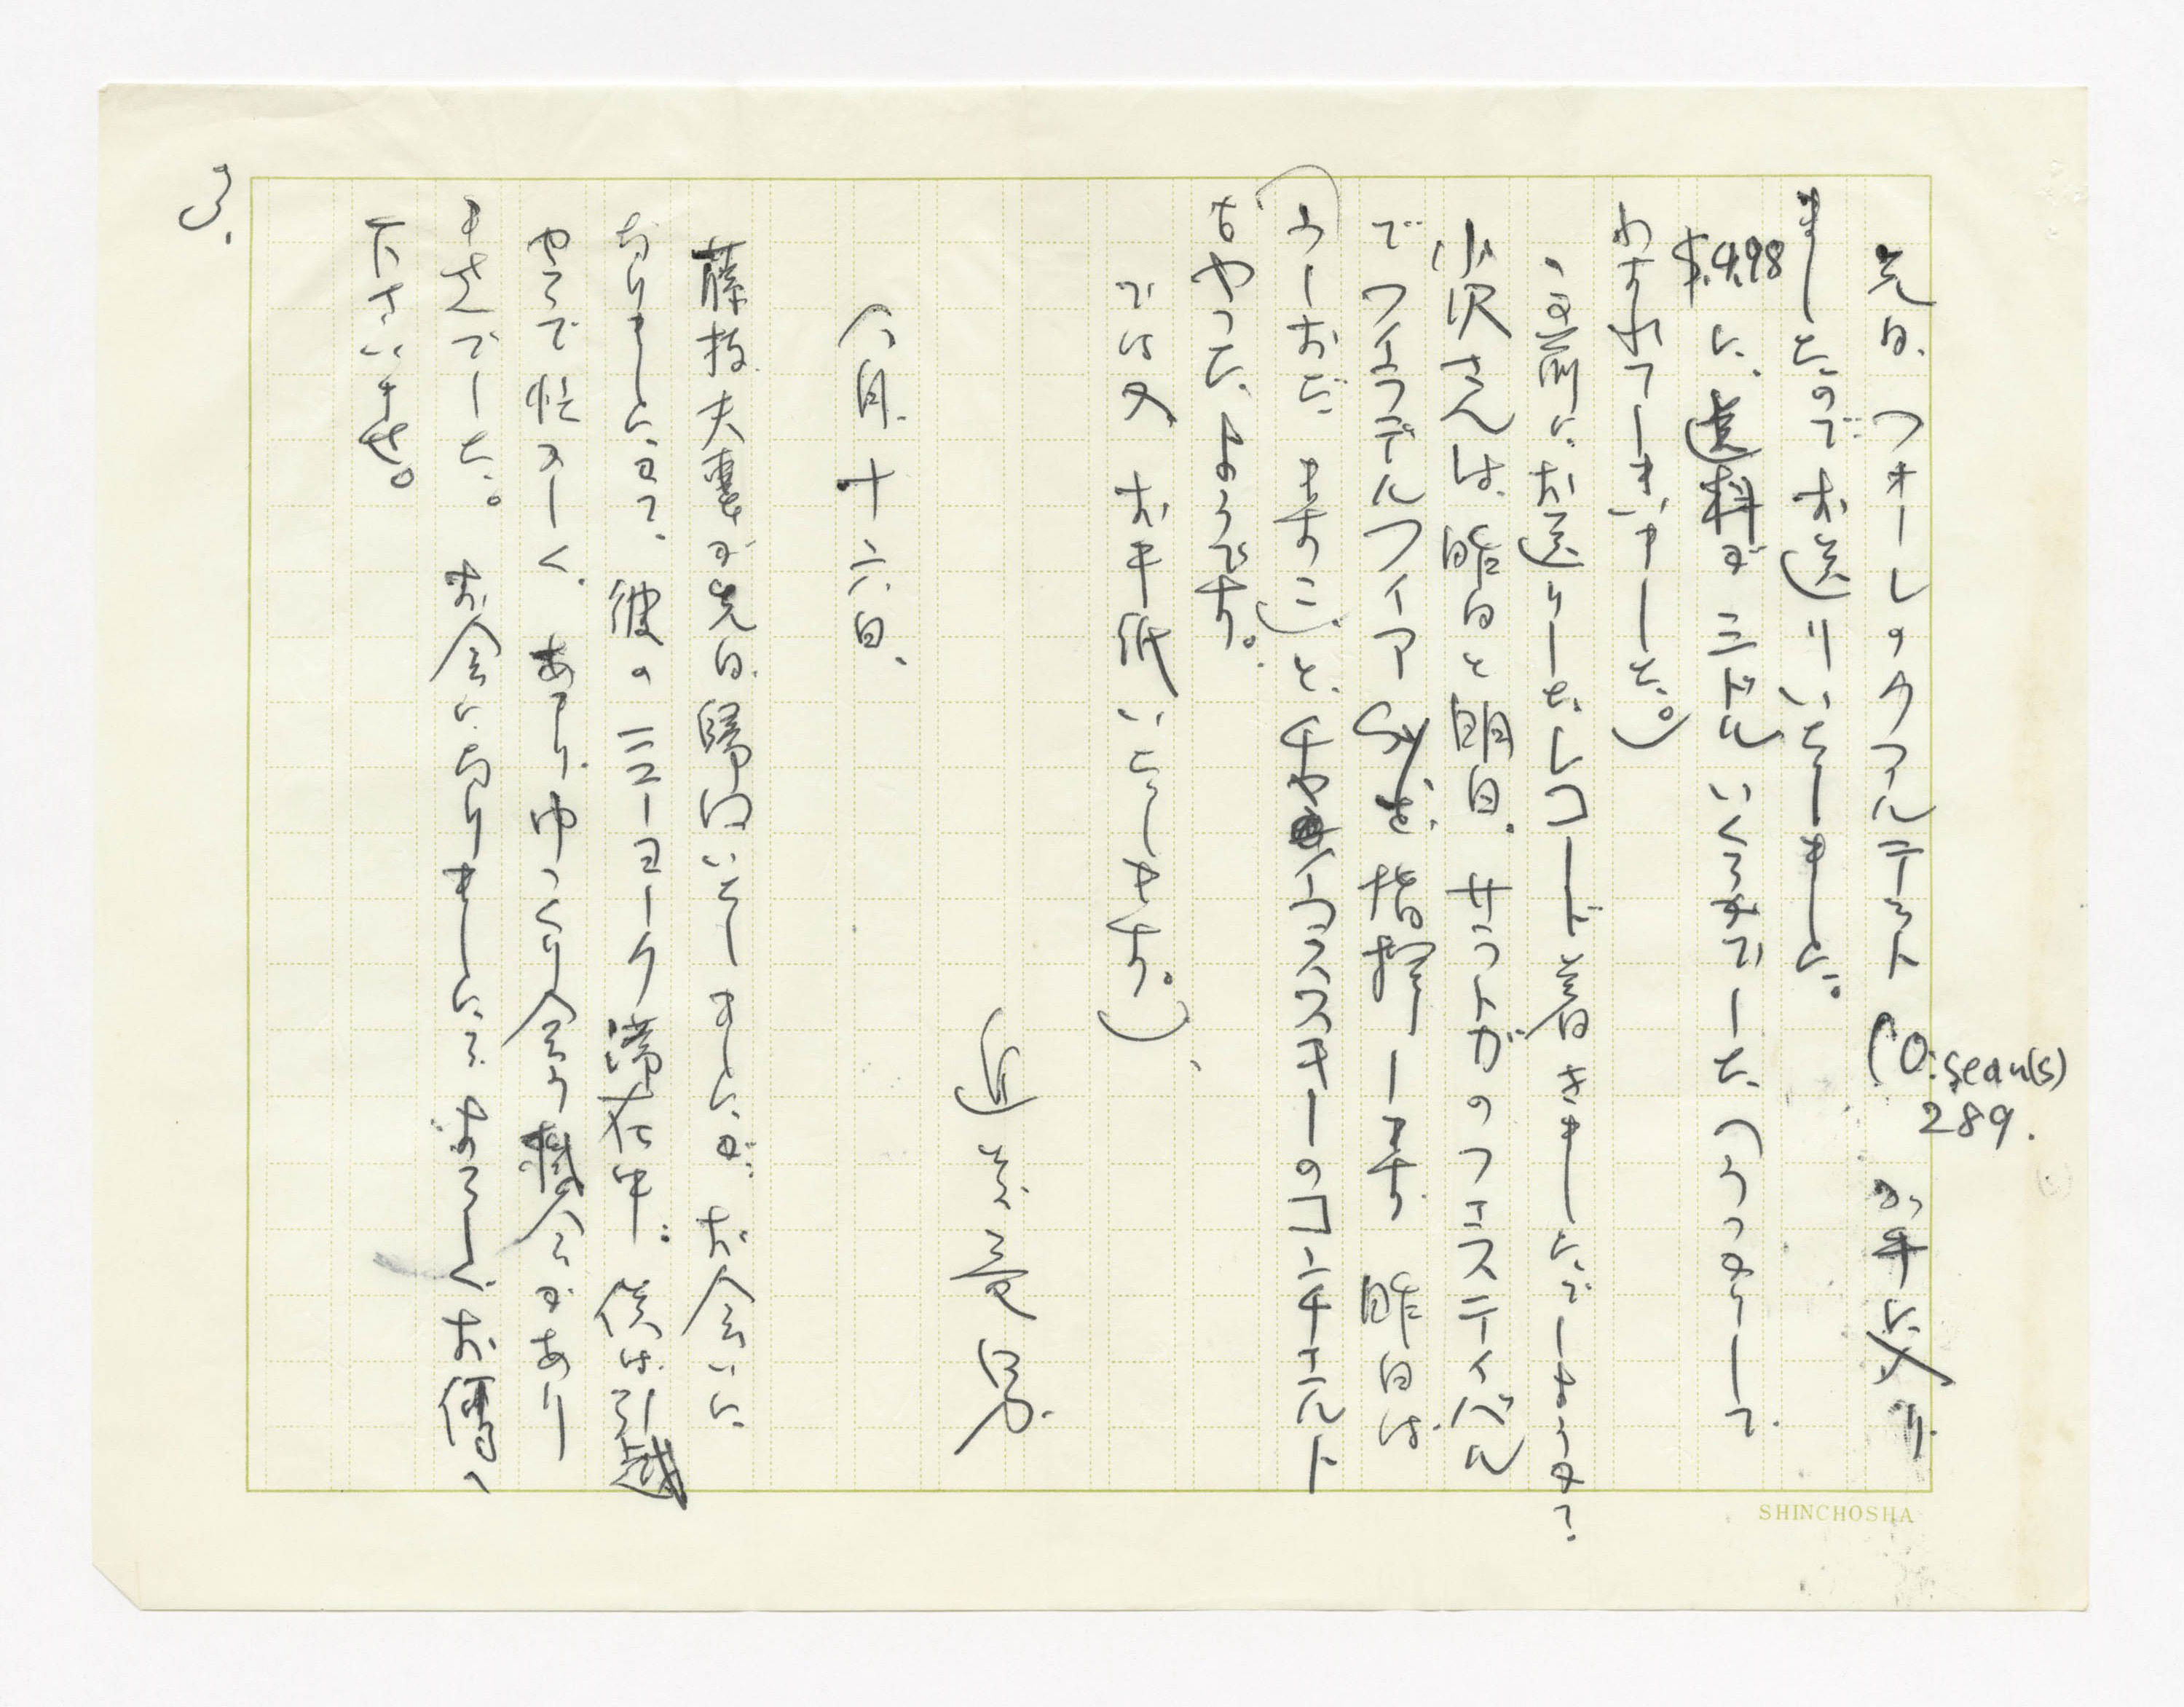 先日、フォーレのクワルテット (O: Sean(s) 289. が手に入り
ましたのでお送りいたしました。
$4.98 に、送料が三ドルいくらかでした
わすれてしまいました。)
以前にお送りしたレコード着きましたでしょうか?
小沢さんは昨日と明日 サラトガのフェスティバル
でフィラデルフィア を指揮します 昨日は
と、チャイコフスキーの ロミオとジュリエット
をやったようです。
では又 お手紙いたします。)
八月十六日
藤枝夫妻が先日帰国いたしましたが、お会いに
なりましたか? 彼のニューヨーク滞在中、僕は
で忙しく、あまりゆっくり会う機会がありま
せんでした。お会いになりましたらよろしくお伝え
下さいませ。
3.
SHINCHOSHA